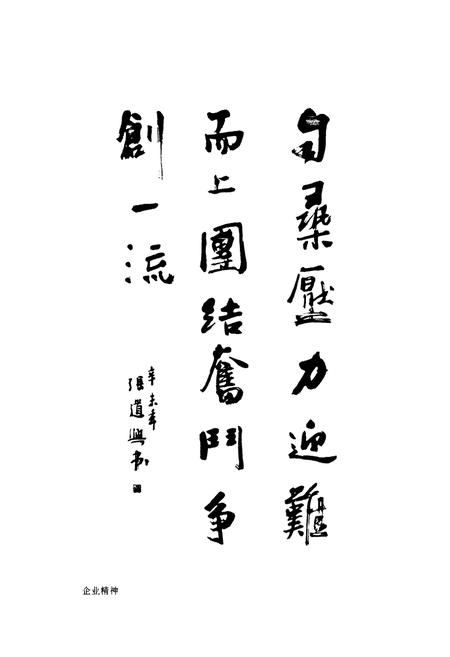 自尋壓力迎難
而上團結奮鬥争
創一流
辛未年
張道興书
企业精神